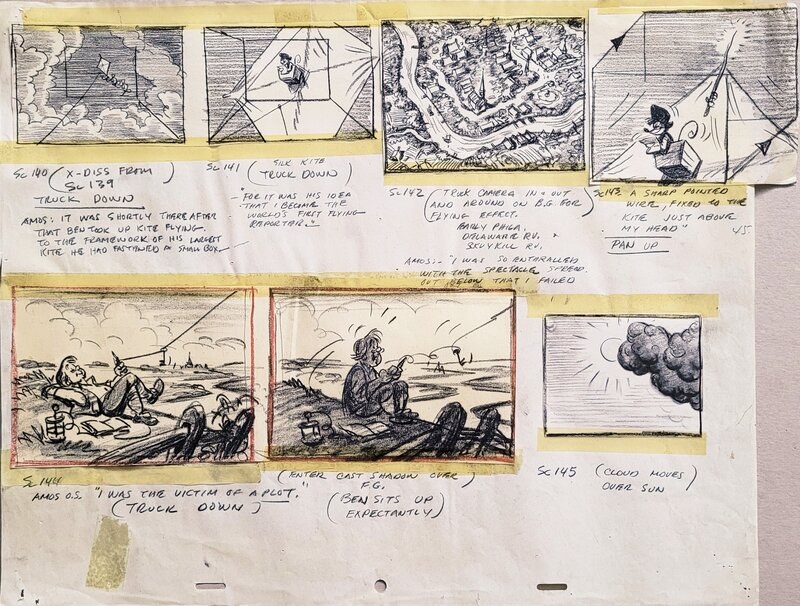 Sc 140 (X-DISS FROM
Sc 139)
TRUCK DOWN
AMOS: IT WAS SHORTLY THERE AFTER
THAT BEN TOOK UP KITE FLYING.
TO THE FRAMEWORK OF HIS LARGEST
KITE HE HAD FASTENED A SMALL BOX.
Sc 141 (SILK KITE
TRUCK DOWN)
"FOR IT WAS HIS IDEA
THAT I BECAME THE
WORLD'S FIRST FLYING
REPORTER."
Sc 142 (TRUCK CAMERA IN & OUT
AND AROUND ON B.G. FOR
FLYING EFFECT.
EARLY PHILA.
DELAWARE RV.
SKUYKILL RV.
AMOS:- "I WAS SO ENTHRALLED
WITH THE SPECTACLE SPREAD
OUT BELOW THAT I FAILED
Sc 143 - A SHARP POINTED
WIRE, FIXED TO THE
KITE JUST ABOVE
MY HEAD"
PAN UP
Sc 144
AMOS O.S. "I WAS THE VICTIM OF A PLOT."
(TRUCK DOWN)
(ENTER CAST SHADOW OVER)
F.G.
(BEN SITS UP
EXPECTANTLY)
Sc 145 (CLOUD MOVES)
OVER SUN